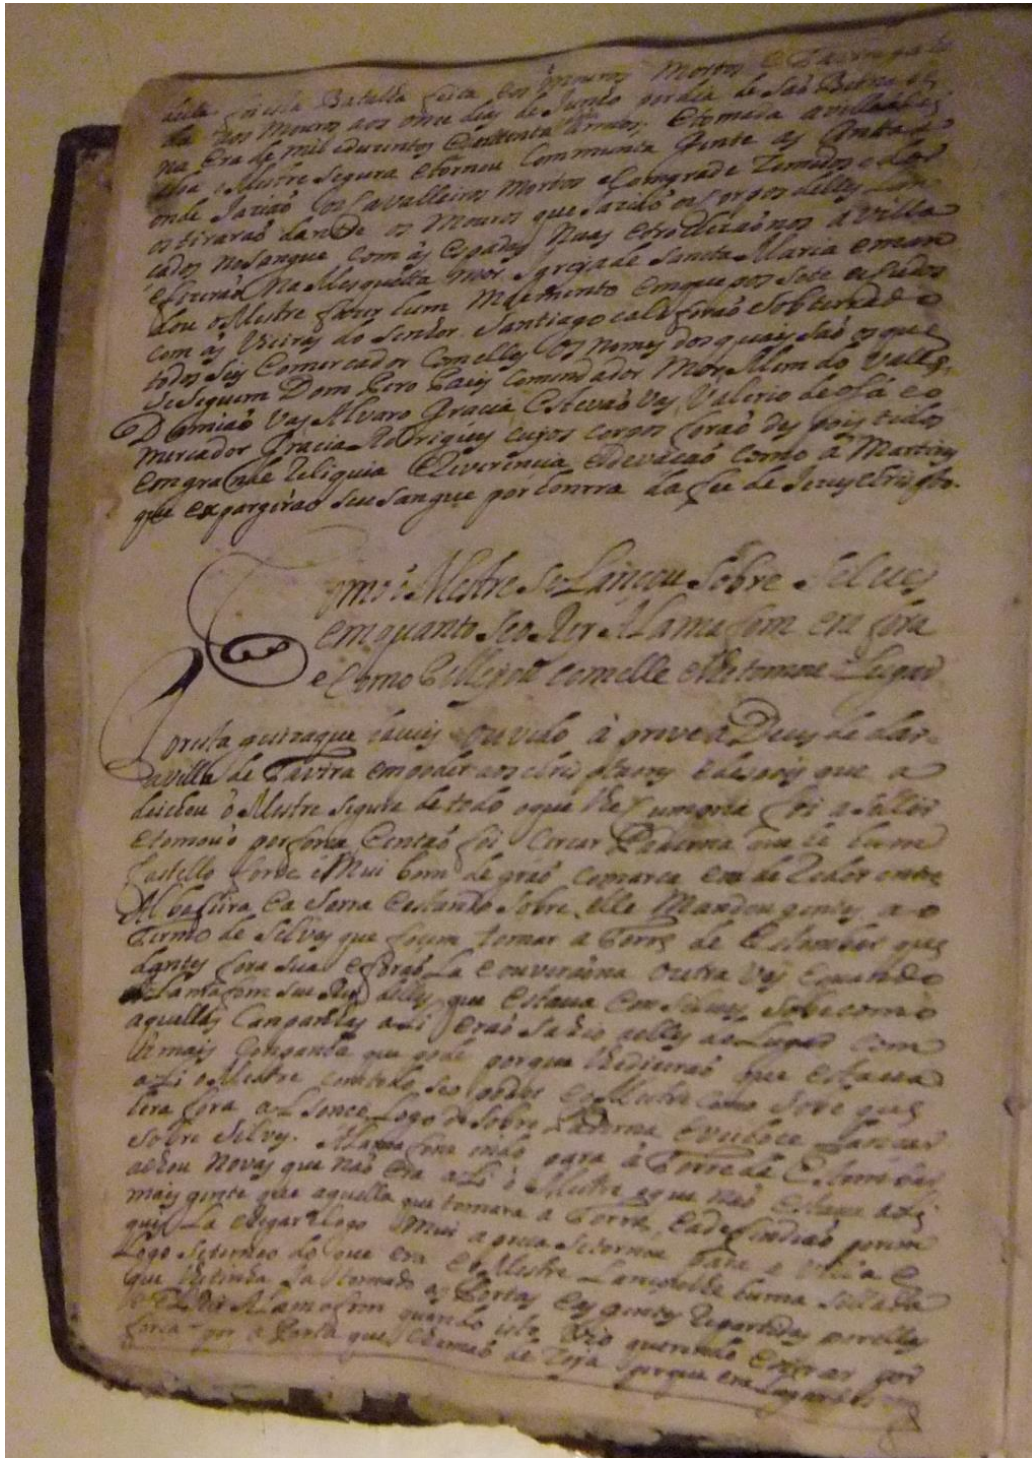 della foi esta Batalha feita dos Mouros Mortos e
da dos Mouros aos onze dias de Junho por dia de São
na Era de mil e duzentos e Quarenta Annos, e tomada a villa
o Mestre segura e tornou Com muita Gente as Antas
onde Jazião os Cavalleiros Mortos e Com grade e dor
os tirarão dantre os Mouros que Jazião os Corpos delles
cados no sangue com as espadas Nuas e á Villa
e fizerão Na Mesquitta Mor Igreja de Sancta Maria e man
dou o Mestre fazer hum Muimento em que pos Sete escudos
com as Vieiras do Senhor Santiago e ali forão Sobterrados
todos seis Comercador Com elles Os nomes dos quais são os que
se seguem Dom Pero Pais Comendador Mór, Mem do Valle,
Damião Vas Alvaro Gracia Estevão Vas, Valerio de osá e o
mercador Gracia Rodrigues cujos corpos forão des pois tidos
em grande Reliquia e Reverencia, e devação como á Martires
que espargirão seu sangue por honrra da fee de Jesus Christo.
Como o Mestre se Lançou Sobre Silves
em quanto seo Rey Alamafom era fora
e Como Pellejou com elle e lhe tomou o Lugar
Por esta guiza que haveis Ouvido á prove a Deus de dar
a villa de Tavira em poder aos christaons e despois que a
deichou o Mestre segura de todo o que lhe cumpria foi a Sallir
e tomou o por força, e entaõ foi Cercar Paderna que he hum
Castello forte é Mui bom de graõ comarca em de Redor entre
Albofeira e a Serra e estando sobre elle Mandou gentes a o
Termo de Silves que fosem tomar a Torre de Estombar que
dantes fora sua e forão La e ouveraõna outra Ves e quando
Alamafom seu Rey delles que estava em Silves, Sobe como
aquellas Companhas ali eraõ sahio a elles ao Lugar com
a mais Companha que pode porque lhe diceraõ que estava
ali o Mestre com todo seo poder e o Mestre como Sobe que
hera fora alsouce Logo de sobre Paderna e veiose Lançar
sobre Silves. Alamafom indo para á Torre da Estombar
achou Novas que não era ali o Mestre e que não estava ali
mais gente que aquella que tomara a Torre, e a defendião porem
que La chegar Logo Mui a preça se tornou para a Villa e
Logo se temeo do que era e o Mestre Lançoulhe huma Sillada
que lhe tinha Ja tomado as Portas e as gentes Repartidas por ellas
e ElRei Alamafom quando isto Vio querendo entrar por
força por a Porta que chamaõ de Zoja porque era